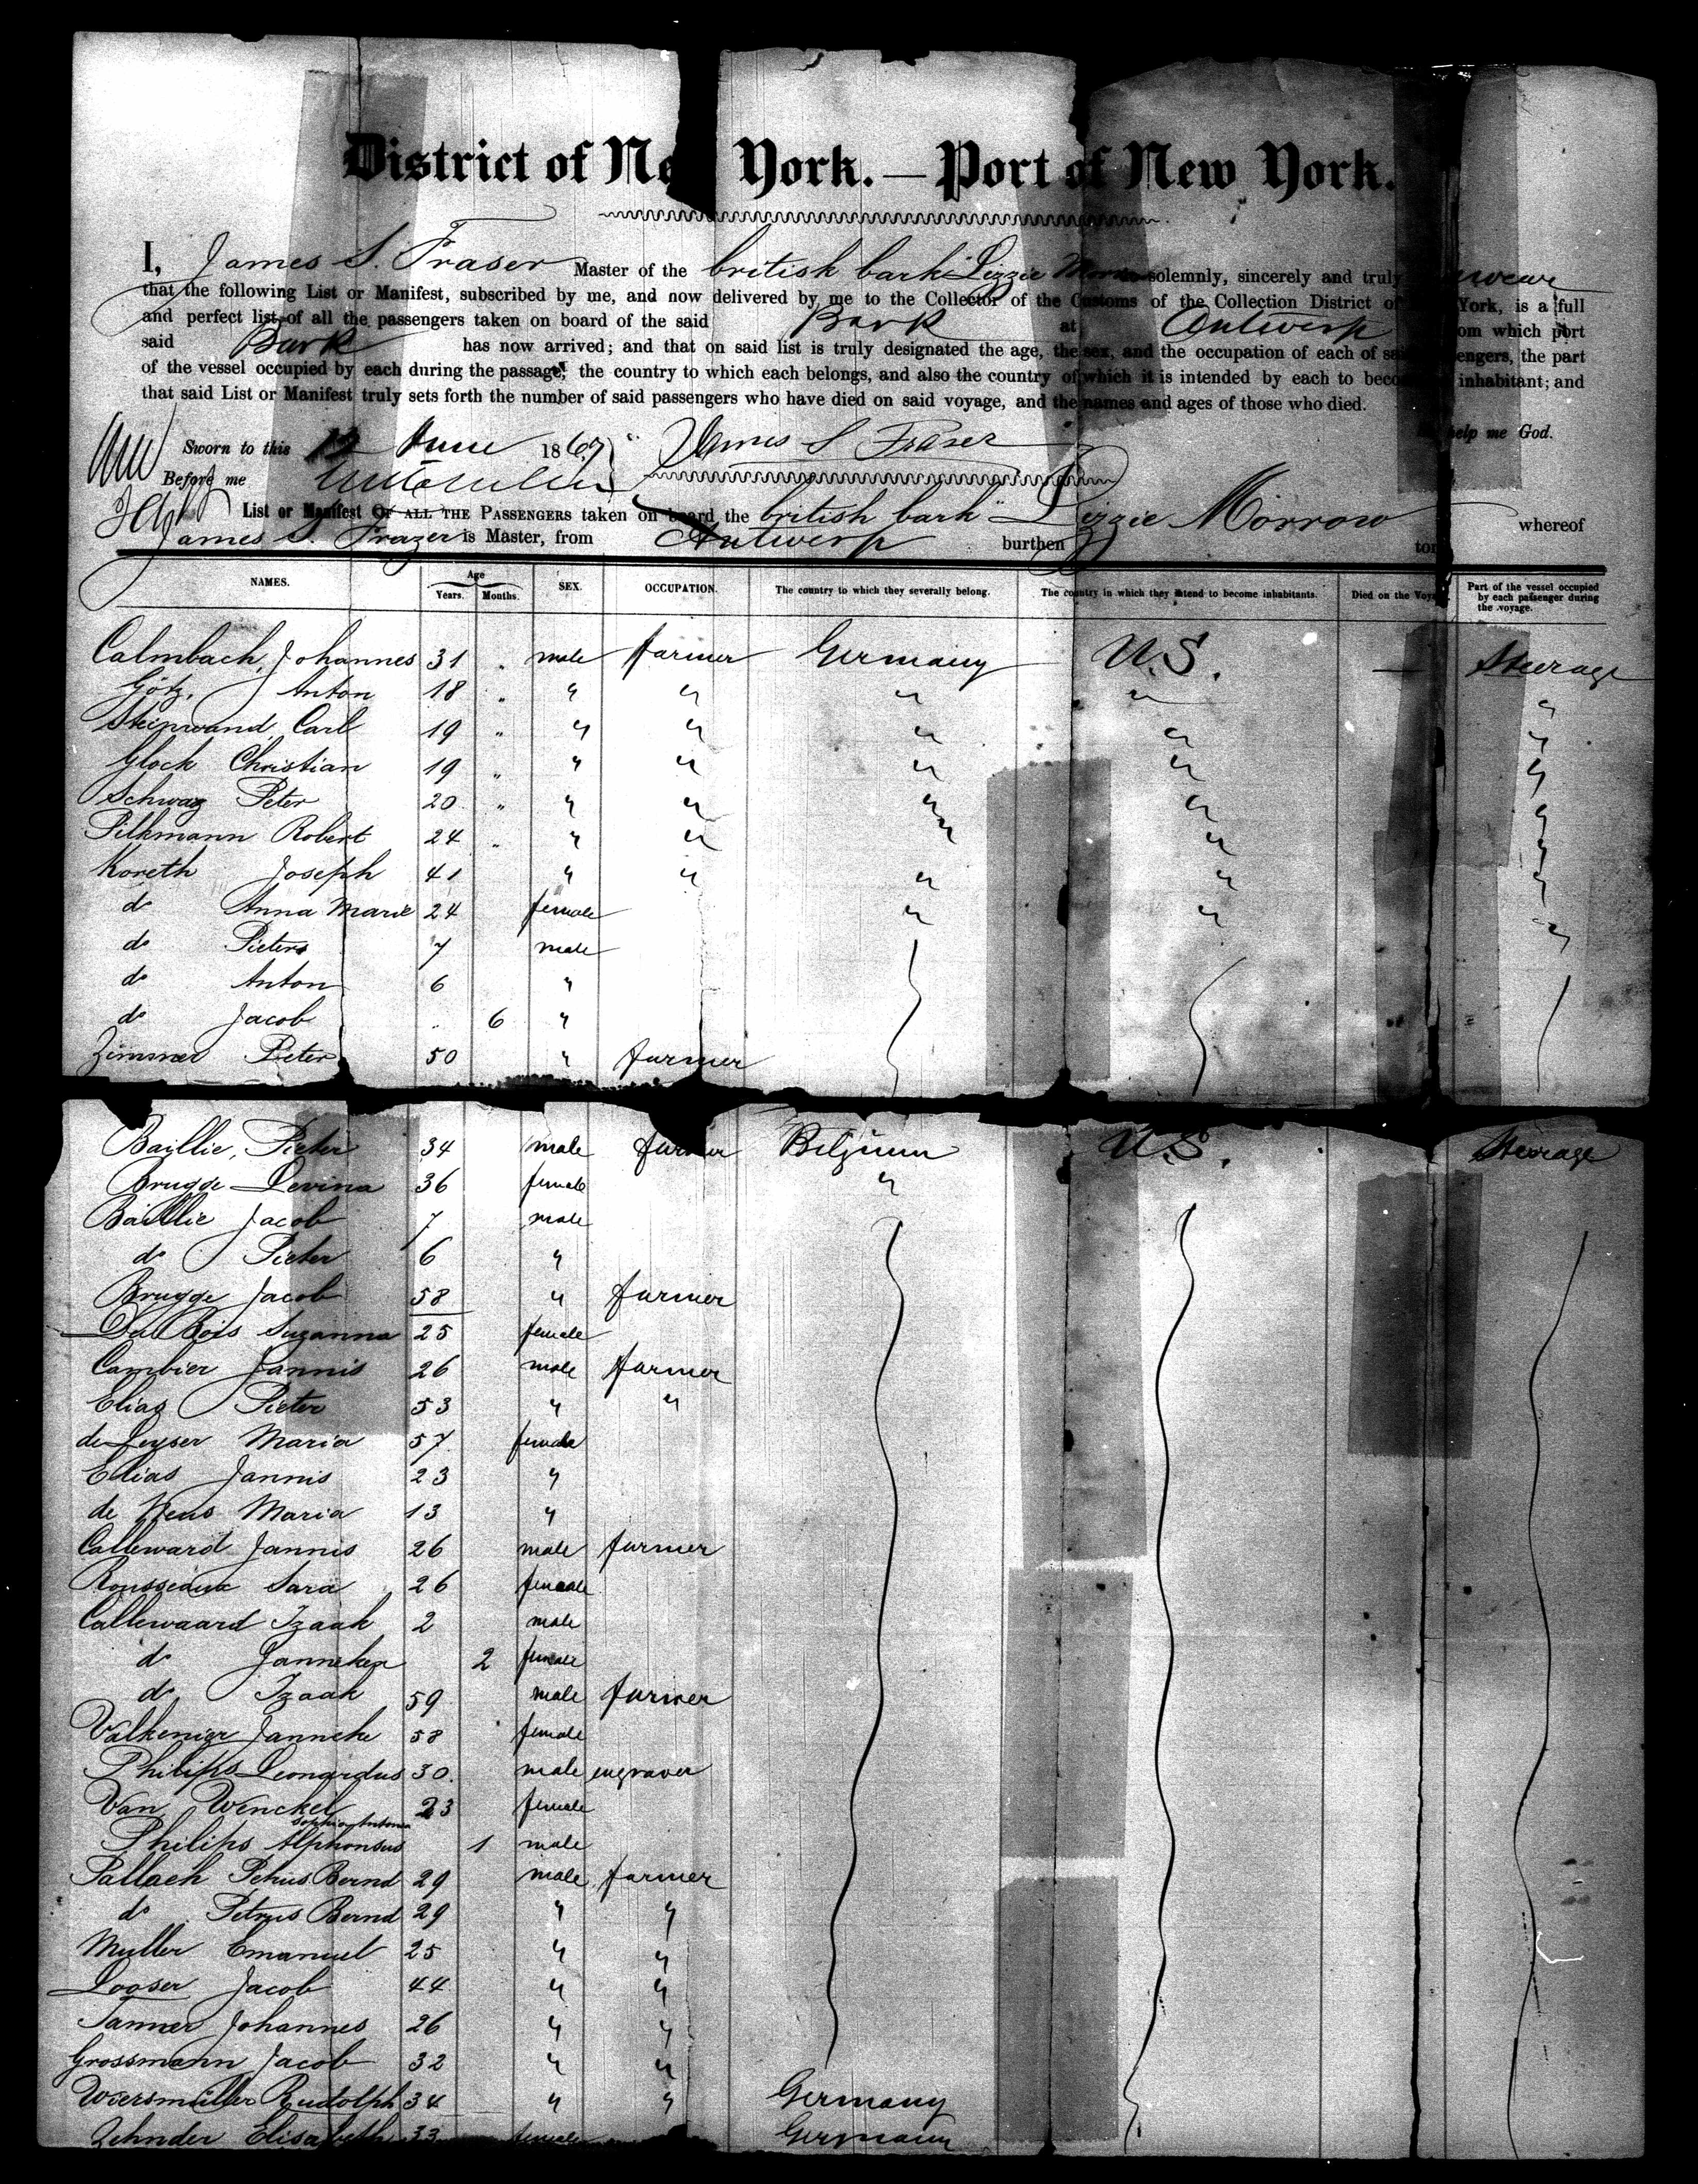 District of Ne York.—Port of New York.
I, James S. Fraser Master of the british bark Lizzie solemnly, sincerely and truly swear
that the following List or Manifest, subscribed by me, and now delivered by me to the Collector of the Customs of the Collection District of York, is a full
and perfect list of all the passengers taken on board of the said Bark at Antwerp om which port
said Bark has now arrived; and that on said list is truly designated the age, the sex, and the occupation of each of sa engers, the part
of the vessel occupied by each during the passage, the country to which each belongs, and also the country of which it is intended by each to beco inhabitant; and
that said List or Manifest truly sets forth the number of said passengers who have died on said voyage, and the names and ages of those who died.
help me God.
Sworn to this 12 June 1867 James S Fraser
Before me
List or Manifest OF ALL THE PASSENGERS taken on board the british bark Lizzie Morrow whereof
James S. Frazer is Master, from Antwerp burthen ton
NAMES. Age Years. Months. SEX. OCCUPATION. The country to which they severally belong. The country in which they intend to become inhabitants. Died on the Voya Part of the vessel occupied by each passenger during the voyage.
Calmbach, Johannes 31 " male farmer Germany U.S. — Steerage
Götz, Anton 18 " " " " " "
Steinwand, Carl 19 " " " " " "
Glock Christian 19 " " " " " "
Schwaz Peter 20 " " " " " "
Pilkmann Robert 24 " " " " " "
Koreth Joseph 41 " " " " "
do Anna Marie 24 female " " "
do Pieters 7 male
do Anton 6 "
do Jacob " 6 "
Zimmer Pieter 50 " farmer
Baillie, Pieter 34 male farmer Belgium U.S. Steerage
Brugge Levina 36 female "
Baillie Jacob 7 male
do Pieter 6 "
Brugge Jacob 58 " farmer
Du Bois Suzanna 25 female
Cambier Jannis 26 male farmer
Elias Pieter 53 " "
de Leyser Maria 57 female
Elias Jannis 23 "
de Neus Maria 13 "
Calleward Jannis 26 male farmer
Rousseaux Sara 26 female
Callewaard Izaak 2 male
do Janneken 2 female
do Izaak 59 male farmer
Valkenier Janneke 58 female
Philips Leonardus 30 male engraver
Van Wenckel Sophia Antonia 23 female
Philips Alphonsus 1 male
Pallach Petrus Bernd 29 male farmer
do Petrus Bernd 29 " "
Muller Emanuel 25 " "
Looser Jacob 44 " "
Tanner Johannes 26 " "
Grossmann Jacob 32 " "
Wiersmüller Rudolph 34 " " Germany
Zehnder Elisabeth 33 female Germany